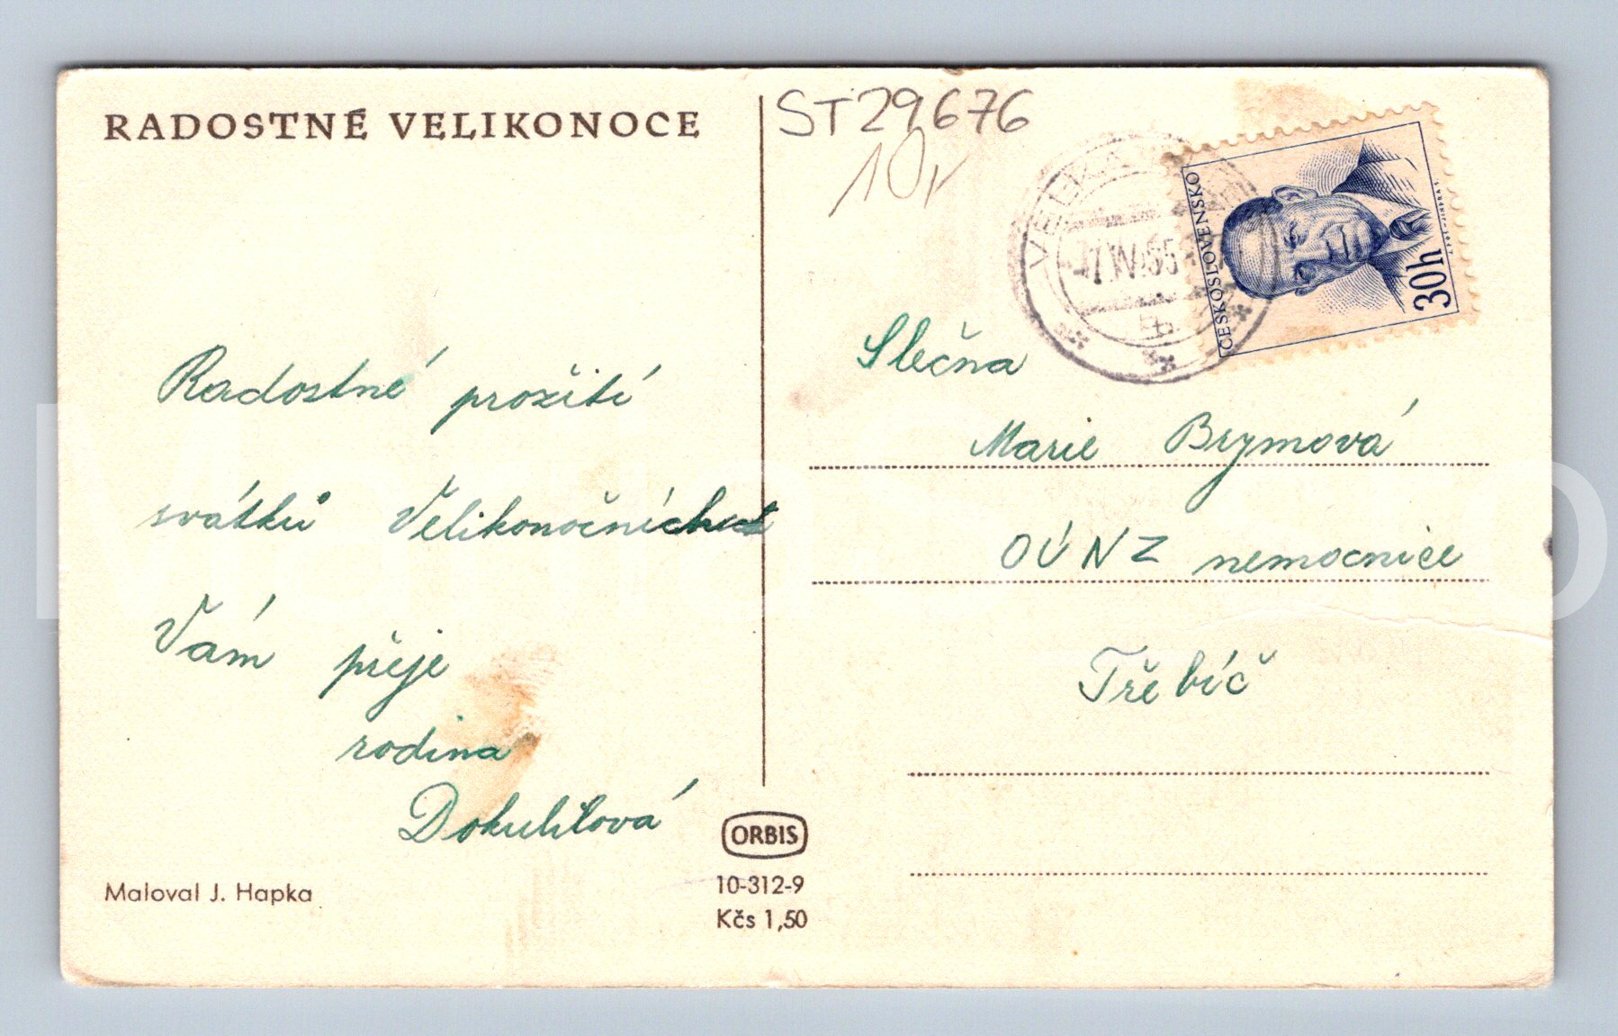 RADOSTNÉ VELIKONOCE
Radostné prožití
svátků Velikonočních
Vám přeje
rodina
Dokulilová
Maloval J. Hapka
ORBIS
10-312-9
Kčs 1,50
ST 29676
10,-
ČESKOSLOVENSKO
30h
7.IV.55
Slečna
Marie Brymová
OÚNZ nemocnice
Třebíč